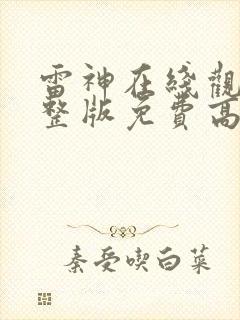 雷神在綫觀
整版免費高
秦受喫白菜